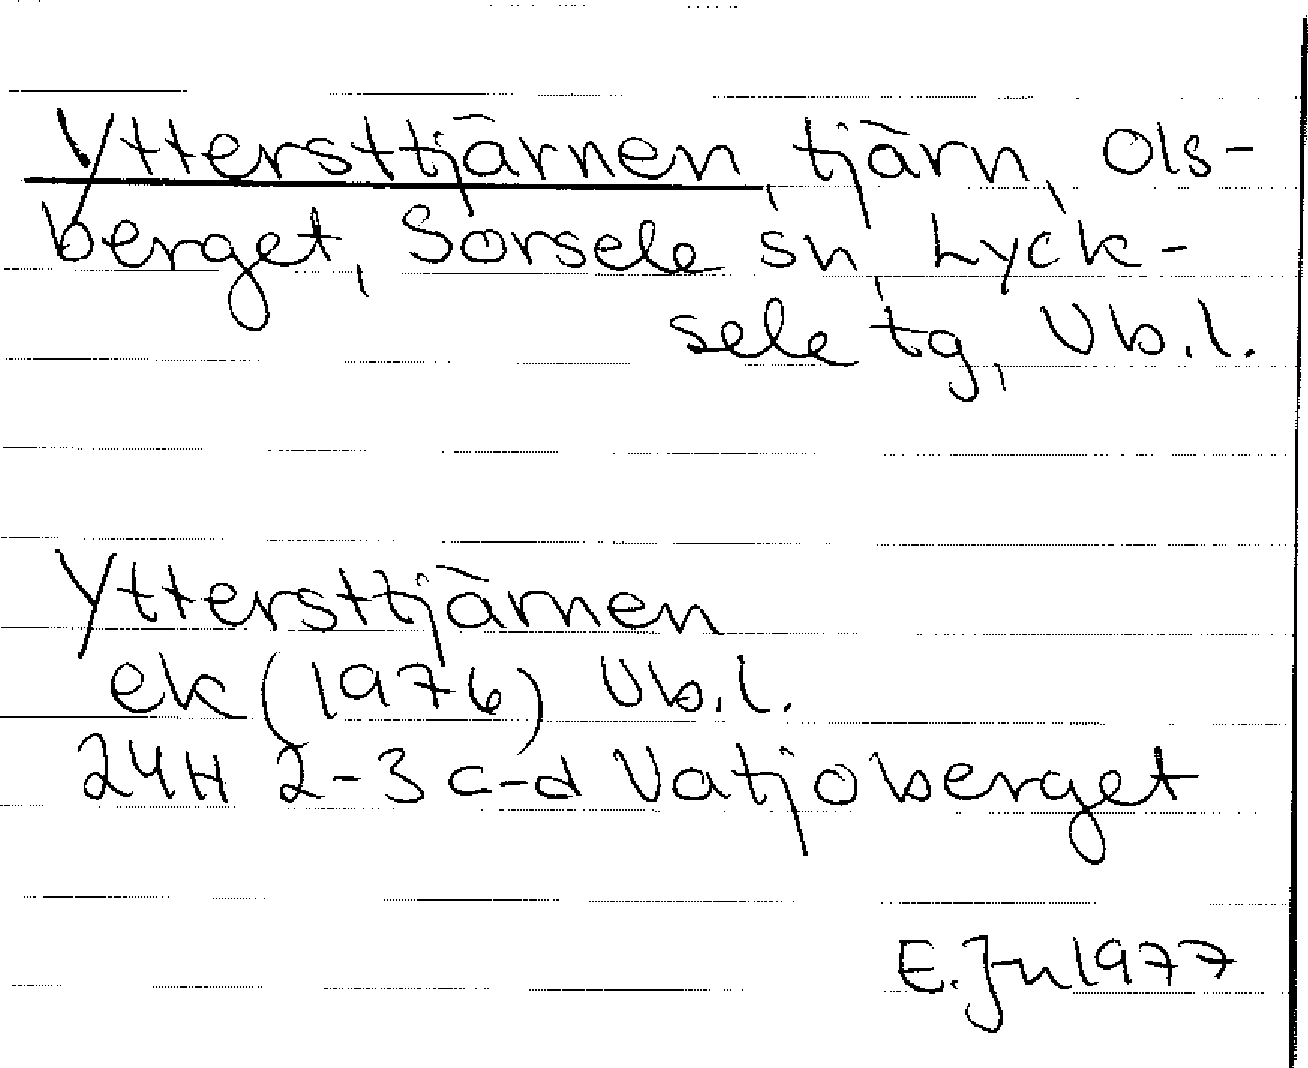 Yttersttjärnen, tjärn, Ols-
berget, Sorsele sn, Lyck-
sele tg, Vb.l.
Yttersttjärnen
ek (1976) Vb.l.
24H 2-3 c-d Vatjoberget
E. Jn 1977